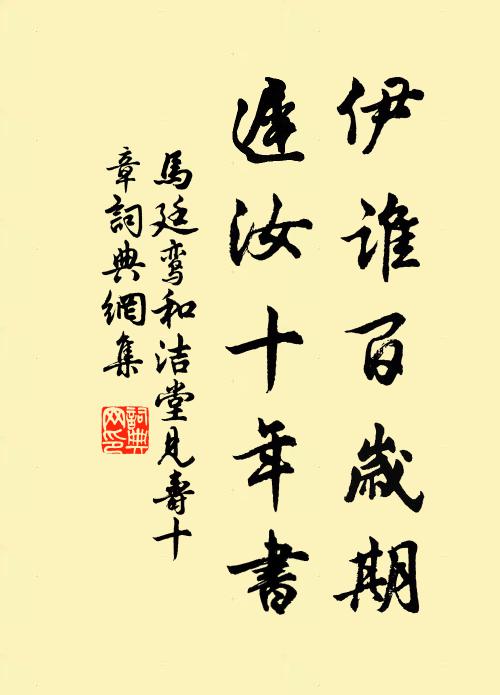 伊谁百歳期
遲汝十年書
馬廷鸾和洁堂見壽十
章詞典網集
詞典
网印